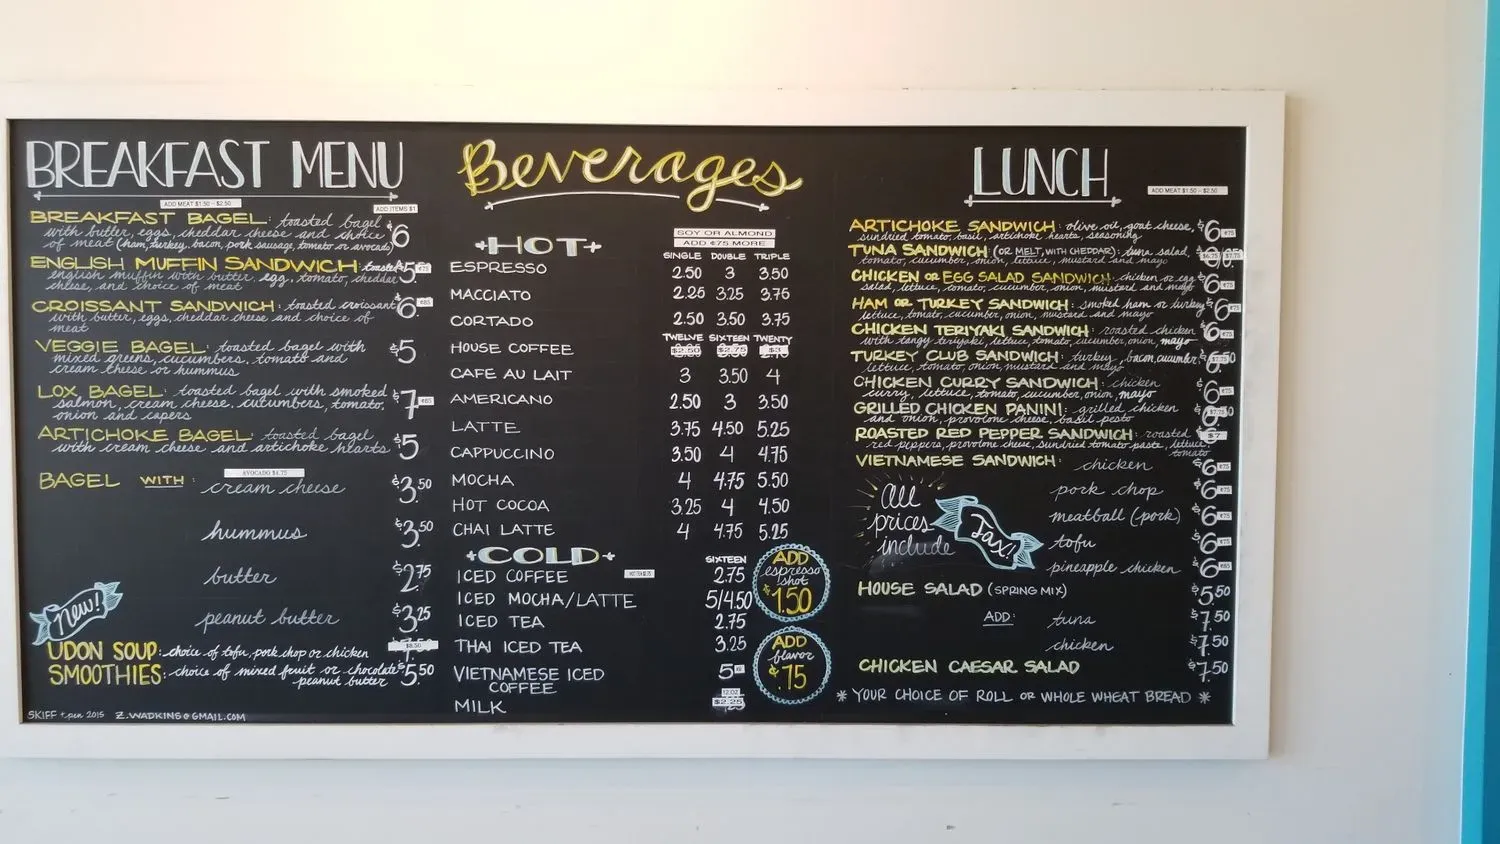 BREAKFAST MENU
ADD MEAT $1.50 - $2.50
ADD ITEMS $1
BREAKFAST BAGEL: toasted bagel
with butter, eggs, cheddar cheese and choice
of meat (ham, turkey, bacon, pork sausage, tomato or avocado)
$6
ENGLISH MUFFIN SANDWICH: toasted
english muffin with butter egg, tomato, cheddar
cheese, and choice of meat
$5
CROISSANT SANDWICH: toasted croissant
with butter, eggs, cheddar cheese and choice of
meat
$6
VEGGIE BAGEL: toasted bagel with
mixed greens, cucumbers, tomato and
cream cheese or hummus
$5
LOX BAGEL: toasted bagel with smoked
salmon, cream cheese, cucumbers, tomato,
onion and capers
$7
ARTICHOKE BAGEL: toasted bagel
with cream cheese and artichoke hearts
$5
AVOCADO $4.75
BAGEL WITH: cream cheese $3.50
hummus $3.50
butter $2.75
peanut butter $3.25
New!
UDON SOUP: choice of tofu, pork chop or chicken $8.50
SMOOTHIES: choice of mixed fruit or chocolate $5.50
peanut butter
SKIFF + pen 2015 Z.WADKINS@GMAIL.COM
Beverages
HOT
SOY OR ALMOND
ADD ¢75 MORE
SINGLE DOUBLE TRIPLE
ESPRESSO 2.50 3 3.50
MACCIATO 2.25 3.25 3.75
CORTADO 2.50 3.50 3.75
TWELVE SIXTEEN TWENTY
HOUSE COFFEE
CAFE AU LAIT 3 3.50 4
AMERICANO 2.50 3 3.50
LATTE 3.75 4.50 5.25
CAPPUCCINO 3.50 4 4.75
MOCHA 4 4.75 5.50
HOT COCOA 3.25 4 4.50
CHAI LATTE 4 4.75 5.25
COLD
SIXTEEN
ICED COFFEE HOT TEA $2.75 2.75
ICED MOCHA/LATTE 5/4.50
ICED TEA 2.75
THAI ICED TEA 3.25
VIETNAMESE ICED 5
COFFEE
12 OZ
MILK
ADD
espresso
shot
$1.50
ADD
flavor
¢.75
LUNCH
ADD MEAT $1.50 - $2.50
ARTICHOKE SANDWICH: olive oil, goat cheese,
sundried tomato, basil, artichoke hearts, seasoning
$6 ¢75
TUNA SANDWICH (OR MELT, WITH CHEDDAR): tuna salad,
tomato, cucumber, onion, lettuce, mustard and mayo
$6.75 $7.75
CHICKEN OR EGG SALAD SANDWICH: chicken or egg
salad, lettuce, tomato, cucumber, onion, mustard and mayo
$6 ¢75
HAM OR TURKEY SANDWICH: smoked ham or turkey
lettuce, tomato, cucumber, onion, mustard and mayo
$6 ¢75
CHICKEN TERIYAKI SANDWICH: roasted chicken
with tangy teriyaki, lettuce, tomato, cucumber, onion, mayo
$6 ¢75
TURKEY CLUB SANDWICH: turkey, bacon, cucumber
lettuce, tomato, onion, mustard and mayo
CHICKEN CURRY SANDWICH: chicken
curry, lettuce, tomato, cucumber, onion, mayo
$6 ¢75
GRILLED CHICKEN PANINI: grilled chicken
and onion, provolone cheese, basil pesto
ROASTED RED PEPPER SANDWICH: roasted
red peppers, provolone cheese, sundried tomato paste, lettuce,
tomato
$7
VIETNAMESE SANDWICH: chicken $6 ¢75
pork chop $6 ¢75
meatball (pork) $6 ¢75
tofu $6 ¢75
pineapple chicken $6
all
prices
include
Tax!
HOUSE SALAD (SPRING MIX) $5.50
ADD: tuna $7.50
chicken $7.50
CHICKEN CAESAR SALAD $7.50
* YOUR CHOICE OF ROLL OR WHOLE WHEAT BREAD *